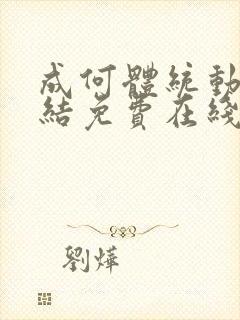 成何體統動
結免費在綫
劉燁